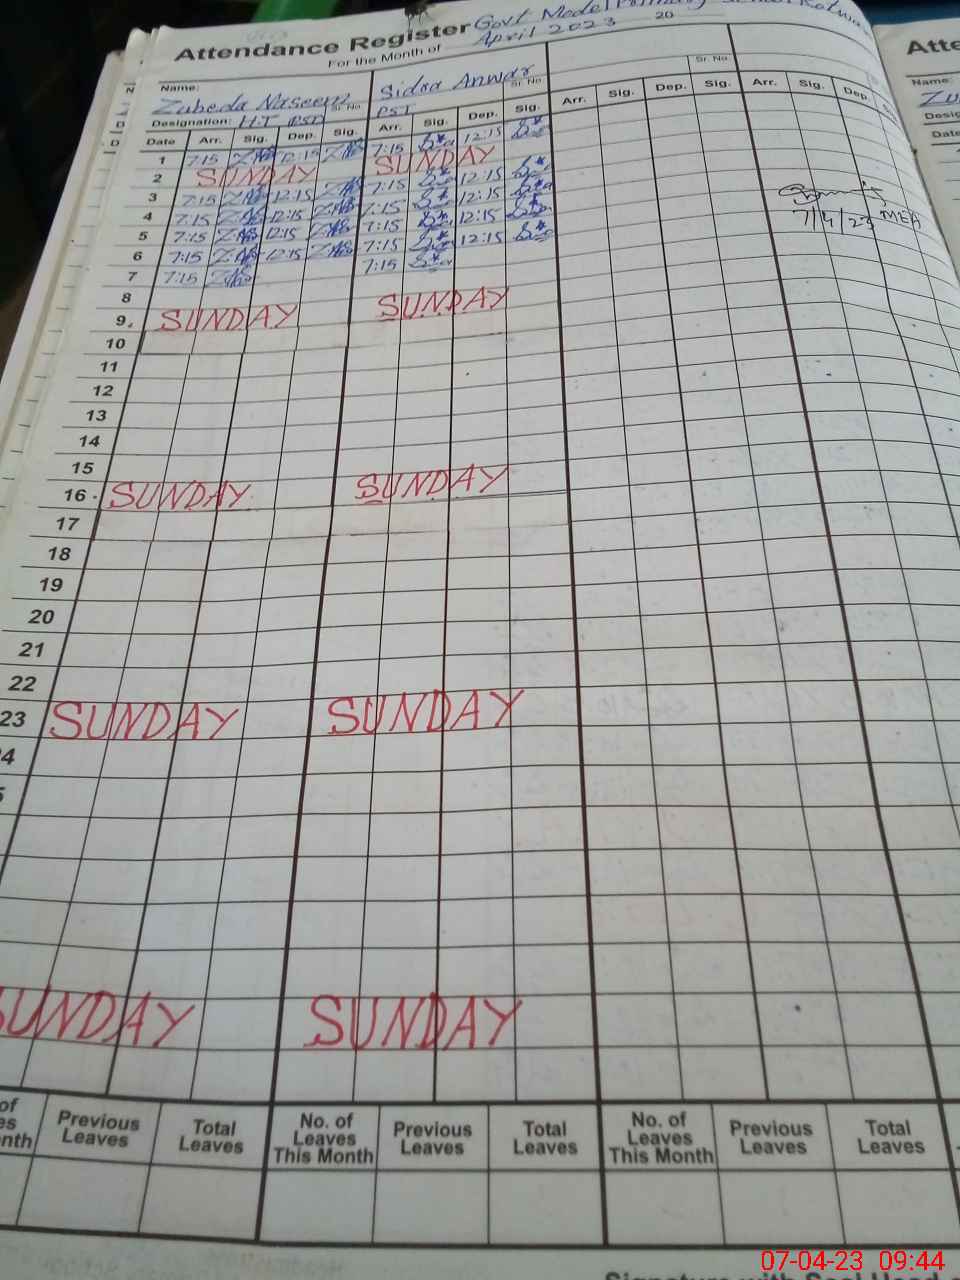 Attendance Register Govt Model Primary
For the Month of April 2023 20
Name: Zubeda Naseem Sr. No. Sidra Anwar Sr. No. Sr. No.
Designation: H.T PST
Date Arr. Sig. Dep. Sig. Arr. Sig. Dep. Sig. Arr. Sig. Dep. Sig. Arr. Sig. Dep.
1 7:15 12:15 7:15 12:15
2 SUNDAY SUNDAY
3 7:15 12:15 7:15 12:15
4 7:15 12:15 7:15 12:15
5 7:15 12:15 7:15 12:15
6 7:15 12:15 7:15 12:15
7 7:15 7:15
7/4/23 MEA
8
9 SUNDAY SUNDAY
10
11
12
13
14
15
16 SUNDAY SUNDAY
17
18
19
20
21
22
23 SUNDAY SUNDAY
4
5
SUNDAY SUNDAY
Previous Leaves Total Leaves No. of Leaves This Month Previous Leaves Total Leaves No. of Leaves This Month Previous Leaves Total Leaves
Atte
Name:
Zu
Desig
Date
07-04-23 09:44